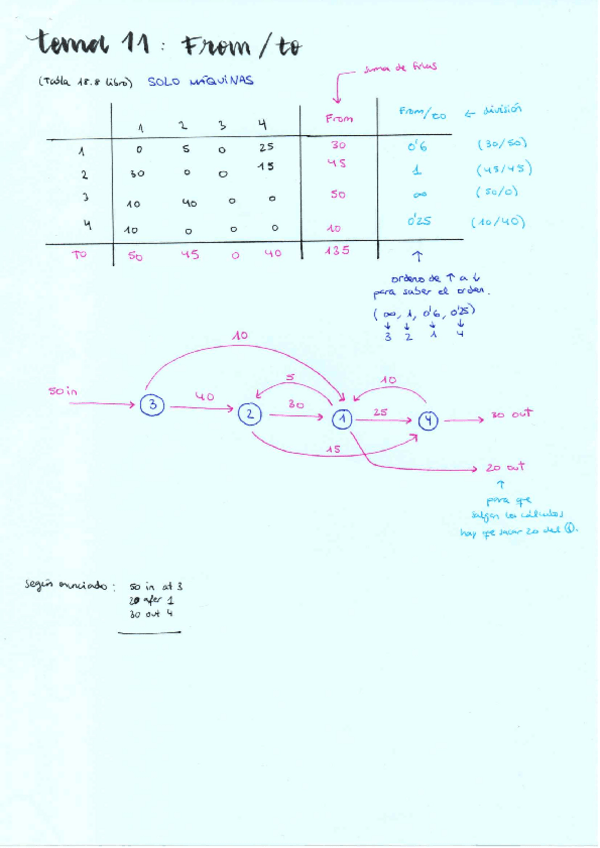 tema 11: From/to
(Tabla 18.8 libro) SOLO MÁQUINAS
suma de filas
1 2 3 4 From From/to ← división
1 0 5 0 25 30 0'6 (30/50)
2 30 0 0 15 45 1 (45/45)
3 10 40 0 0 50 ∞ (50/0)
4 10 0 0 0 10 0'25 (10/40)
TO 50 45 0 40 135 ↑
ordeno de ↑ a ↓
para saber el orden.
(∞, 1, 0'6, 0'25)
↓ ↓ ↓ ↓
3 2 1 4
10
50 in 3 40 2 5 30 1 10 25 4 30 out
15
20 out
↑
para que
salgan los cálculos
hay que sacar 20 del ①.
Según enunciado: 50 in at 3
20 after 1
30 out 4